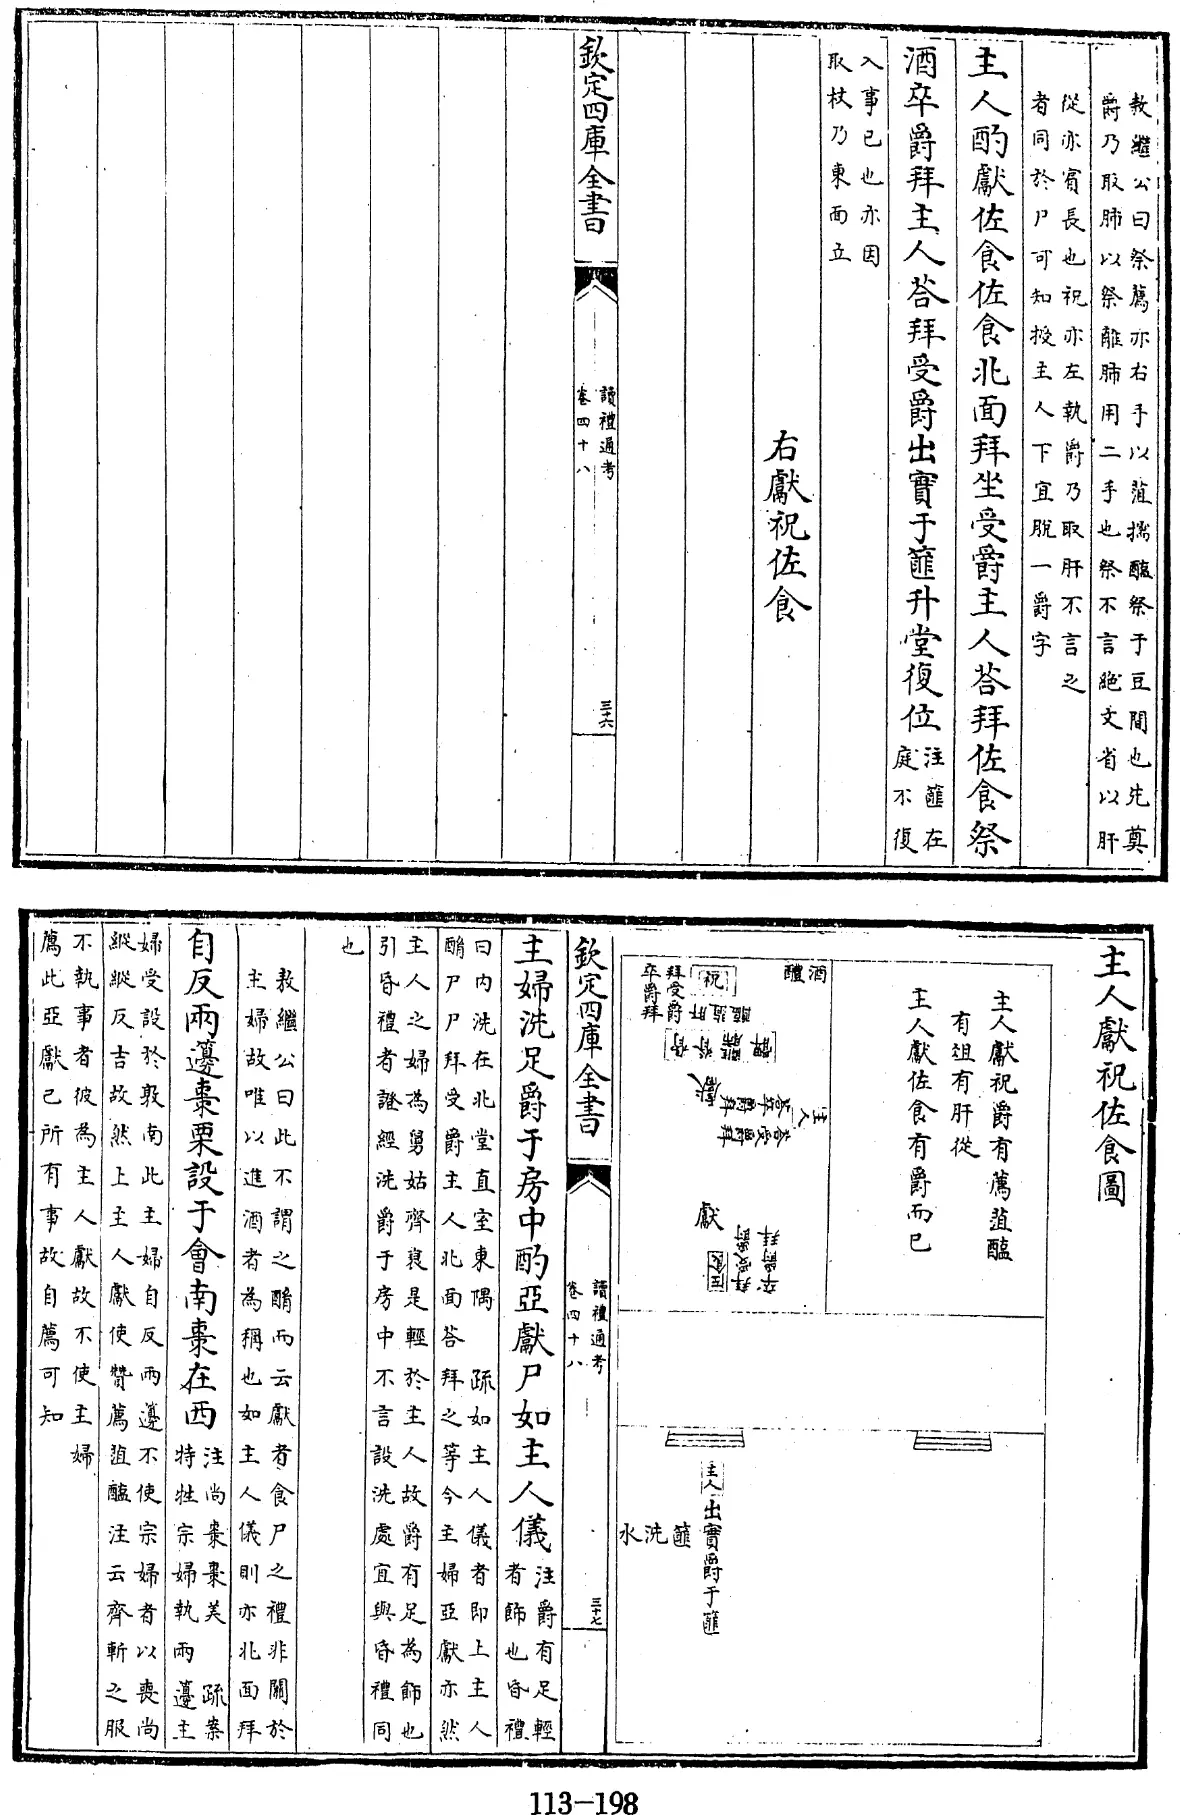 敖繼公曰祭薦亦右手以菹擩醢祭于豆間也先奠
爵乃取肺以祭離肺用二手也祭不言絶文省以肝
從亦賔長也祝亦左執爵乃取肝不言之
者同於尸可知授主人下宜脱一爵字
主人酌獻佐食佐食北面拜坐受爵主人荅拜佐食祭
酒卒爵拜主人荅拜受爵出實于篚升堂復位
注篚在
庭不復
入事已也亦因
取杖乃東面立
右獻祝佐食
欽定四庫全書
讀禮通考
卷四十八
三十六
主人獻祝佐食圖
主人獻祝爵有薦菹醢
有俎有肝從
主人獻佐食有爵而已
酒
醴
祝
拜受爵
卒爵拜
醢菹肝
獻
主人
獻
佐食
主人出實爵于篚
篚
洗
水
欽定四庫全書
讀禮通考
卷四十八
三十七
主婦洗足爵于房中酌亞獻尸如主人儀
注爵有足輕
者飾也昏禮
曰内洗在北堂直室東隅 疏如主人儀者即上主人
酳尸尸拜受爵主人北面荅拜之等今主婦亞獻亦然
主人之婦為舅姑齊衰是輕於主人故爵有足為飾也
引昏禮者證經洗爵于房中不言設洗處宜與昏禮同
也
敖繼公曰此不謂之酳而云獻者食尸之禮非關於
主婦故唯以進酒者為稱也如主人儀則亦北面拜
自反兩籩棗栗設于會南棗在西
注尚棗棗美 疏案
特牲宗婦執兩籩主
婦受設於敦南此主婦自反兩籩不使宗婦者以喪尚
縱縱反吉故然上主人獻使贊薦菹醢注云齊斬之服
不執事者彼為主人獻故不使主婦
薦此亞獻己所有事故自薦可知
113-198